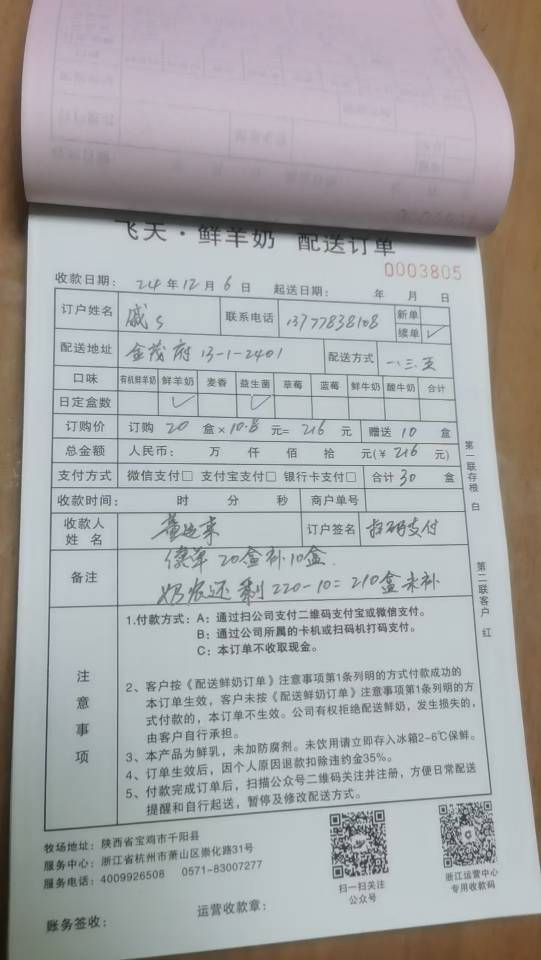 飞天·鲜羊奶 配送订单
0003805
收款日期： 24 年 12 月 6 日 起送日期： 年 月 日
订户姓名 戚 联系电话 13777838108 新单
续单 ✓
配送地址 金茂府 13-1-2401 配送方式 一.三.五
口味 有机鲜羊奶 鲜羊奶 麦香 益生菌 草莓 蓝莓 鲜牛奶 酸牛奶 合计
日定盒数 ✓ ✓
订购价 订购 20 盒×10.8 元= 216 元 赠送 10 盒
总金额 人民币： 万 仟 佰 拾 元(¥ 216 元)
支付方式 微信支付□ 支付宝支付□ 银行卡支付□ 合计 30 盒
收款时间： 时 分 秒 商户单号
收款人姓名 订户签名 扫码支付
备注 续单 20盒补10盒.
奶农还剩 220-10=210盒未补
第一联存根 白
第二联客户 红
注意事项
1.付款方式：A：通过扫公司支付二维码支付宝或微信支付。
B：通过公司所属的卡机或扫码机打码支付。
C：本订单不收取现金。
2、客户按《配送鲜奶订单》注意事项第1条列明的方式付款成功的
本订单生效，客户未按《配送鲜奶订单》注意事项第1条列明的方
式付款的，本订单不生效。公司有权拒绝配送鲜奶，发生损失的，
由客户自行承担。
3、本产品为鲜乳，未加防腐剂。未饮用请立即存入冰箱2-6℃保鲜。
4、订单生效后，因个人原因退款扣除违约金35%。
5、付款完成订单后，扫描公众号二维码关注并注册，方便日常配送
提醒和自行起送，暂停及修改配送方式。
牧场地址：陕西省宝鸡市千阳县
服务中心：浙江省杭州市萧山区崇化路31号
服务电话：4009926508 0571-83007277
扫一扫关注
公众号
浙江运营中心
专用收款码
账务签收： 运营收款章：